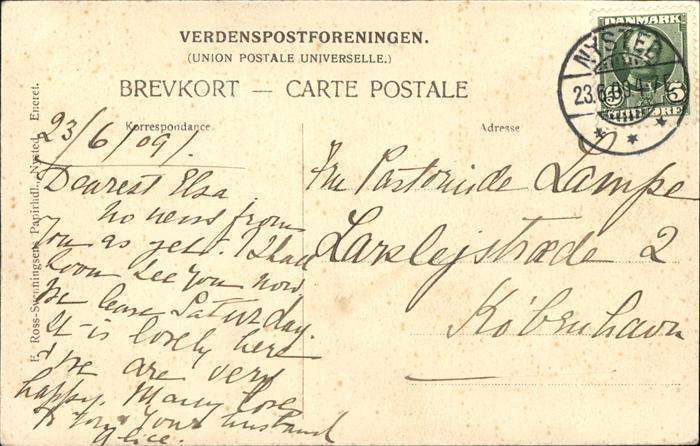 VERDENSPOSTFORENINGEN.
(UNION POSTALE UNIVERSELLE.)
BREVKORT — CARTE POSTALE
Korrespondance.
Adresse
DANMARK
5 ØRE
NYSTED
23.6.09
E. Ross-Svenningsens Papirhdl., Nysted. Eneret.
23/6/09/.
Dearest Elsa
no news from
you as yet. I shall
soon see you now
We leave Saturday.
It is lovely here
& we are very
happy. Many love
to you & your husband
Alice.
Fru Pastorinde Lampe
Larslejstræde 2
København